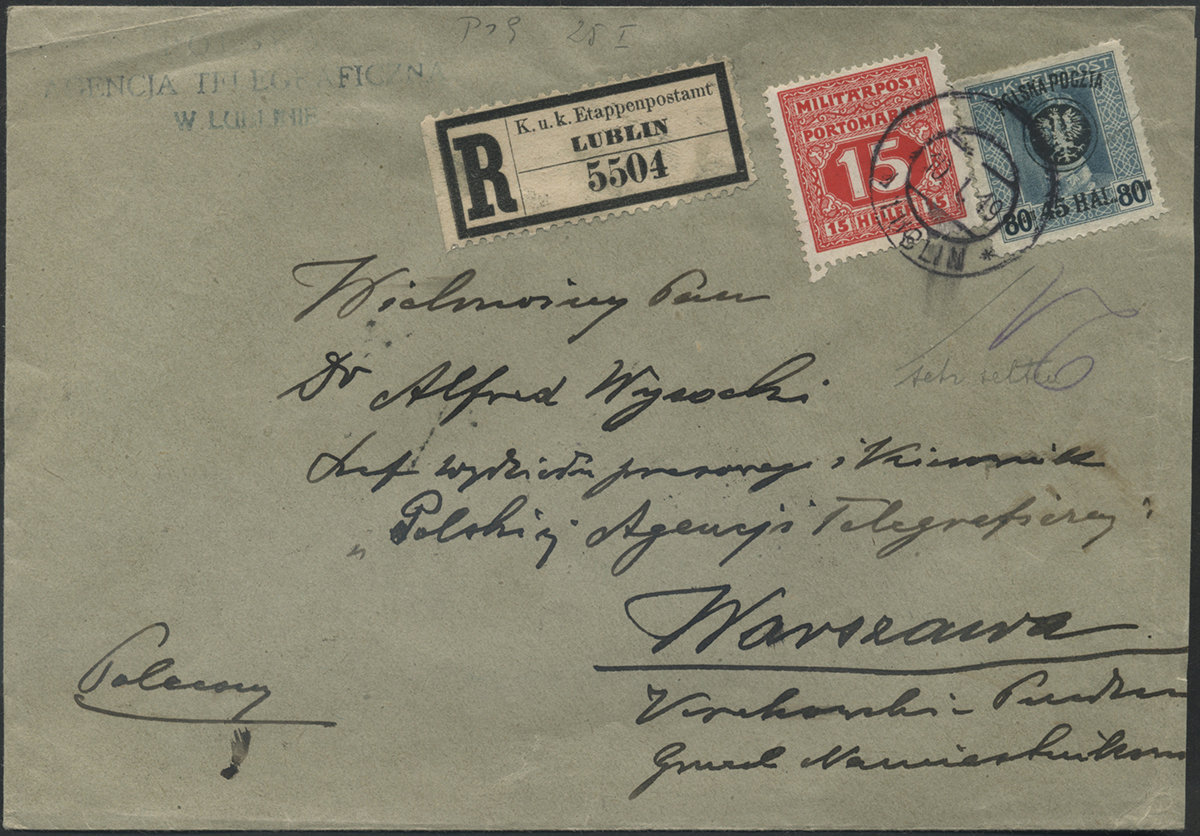 AGENCJA TELEGRAFICZNA
W LUBLINIE
25 I
R
K. u. k. Etappenpostamt
LUBLIN
5504
MILITÄRPOST
PORTOMARKE
15
15 HELLER 15
K.u.K. FELDPOST
POLSKA POCZTA
80 45 HAL. 80
LUBLIN
Wielmożny Pan
Dr Alfred Wysocki
Szef wydziału prasowego i Kierownik
„Polskiej Agencji Telegraficznej"
Warszawa
Polecony
Krakowskie
Gmach